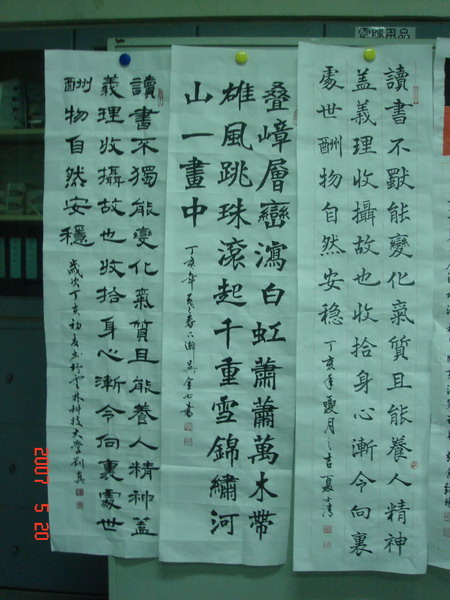 電腦用品
讀書不獨能變化氣質且能養人精神
盖義理收攝故也收拾身心漸令向裏
處世酬物自然安稳
丁亥年夏月之吉夏清
疊嶂層巒瀉白虹蕭蕭萬木帶
雄風跳珠滾起千重雪錦繡河
山一畫中
丁亥年春吳金七書
讀書不獨能變化氣質且能養人精神蓋
義理收攝故也收拾身心漸令向裏處世
酬物自然安穩
歲次丁亥初夏於雲林科技大學劉真
2007 5 20